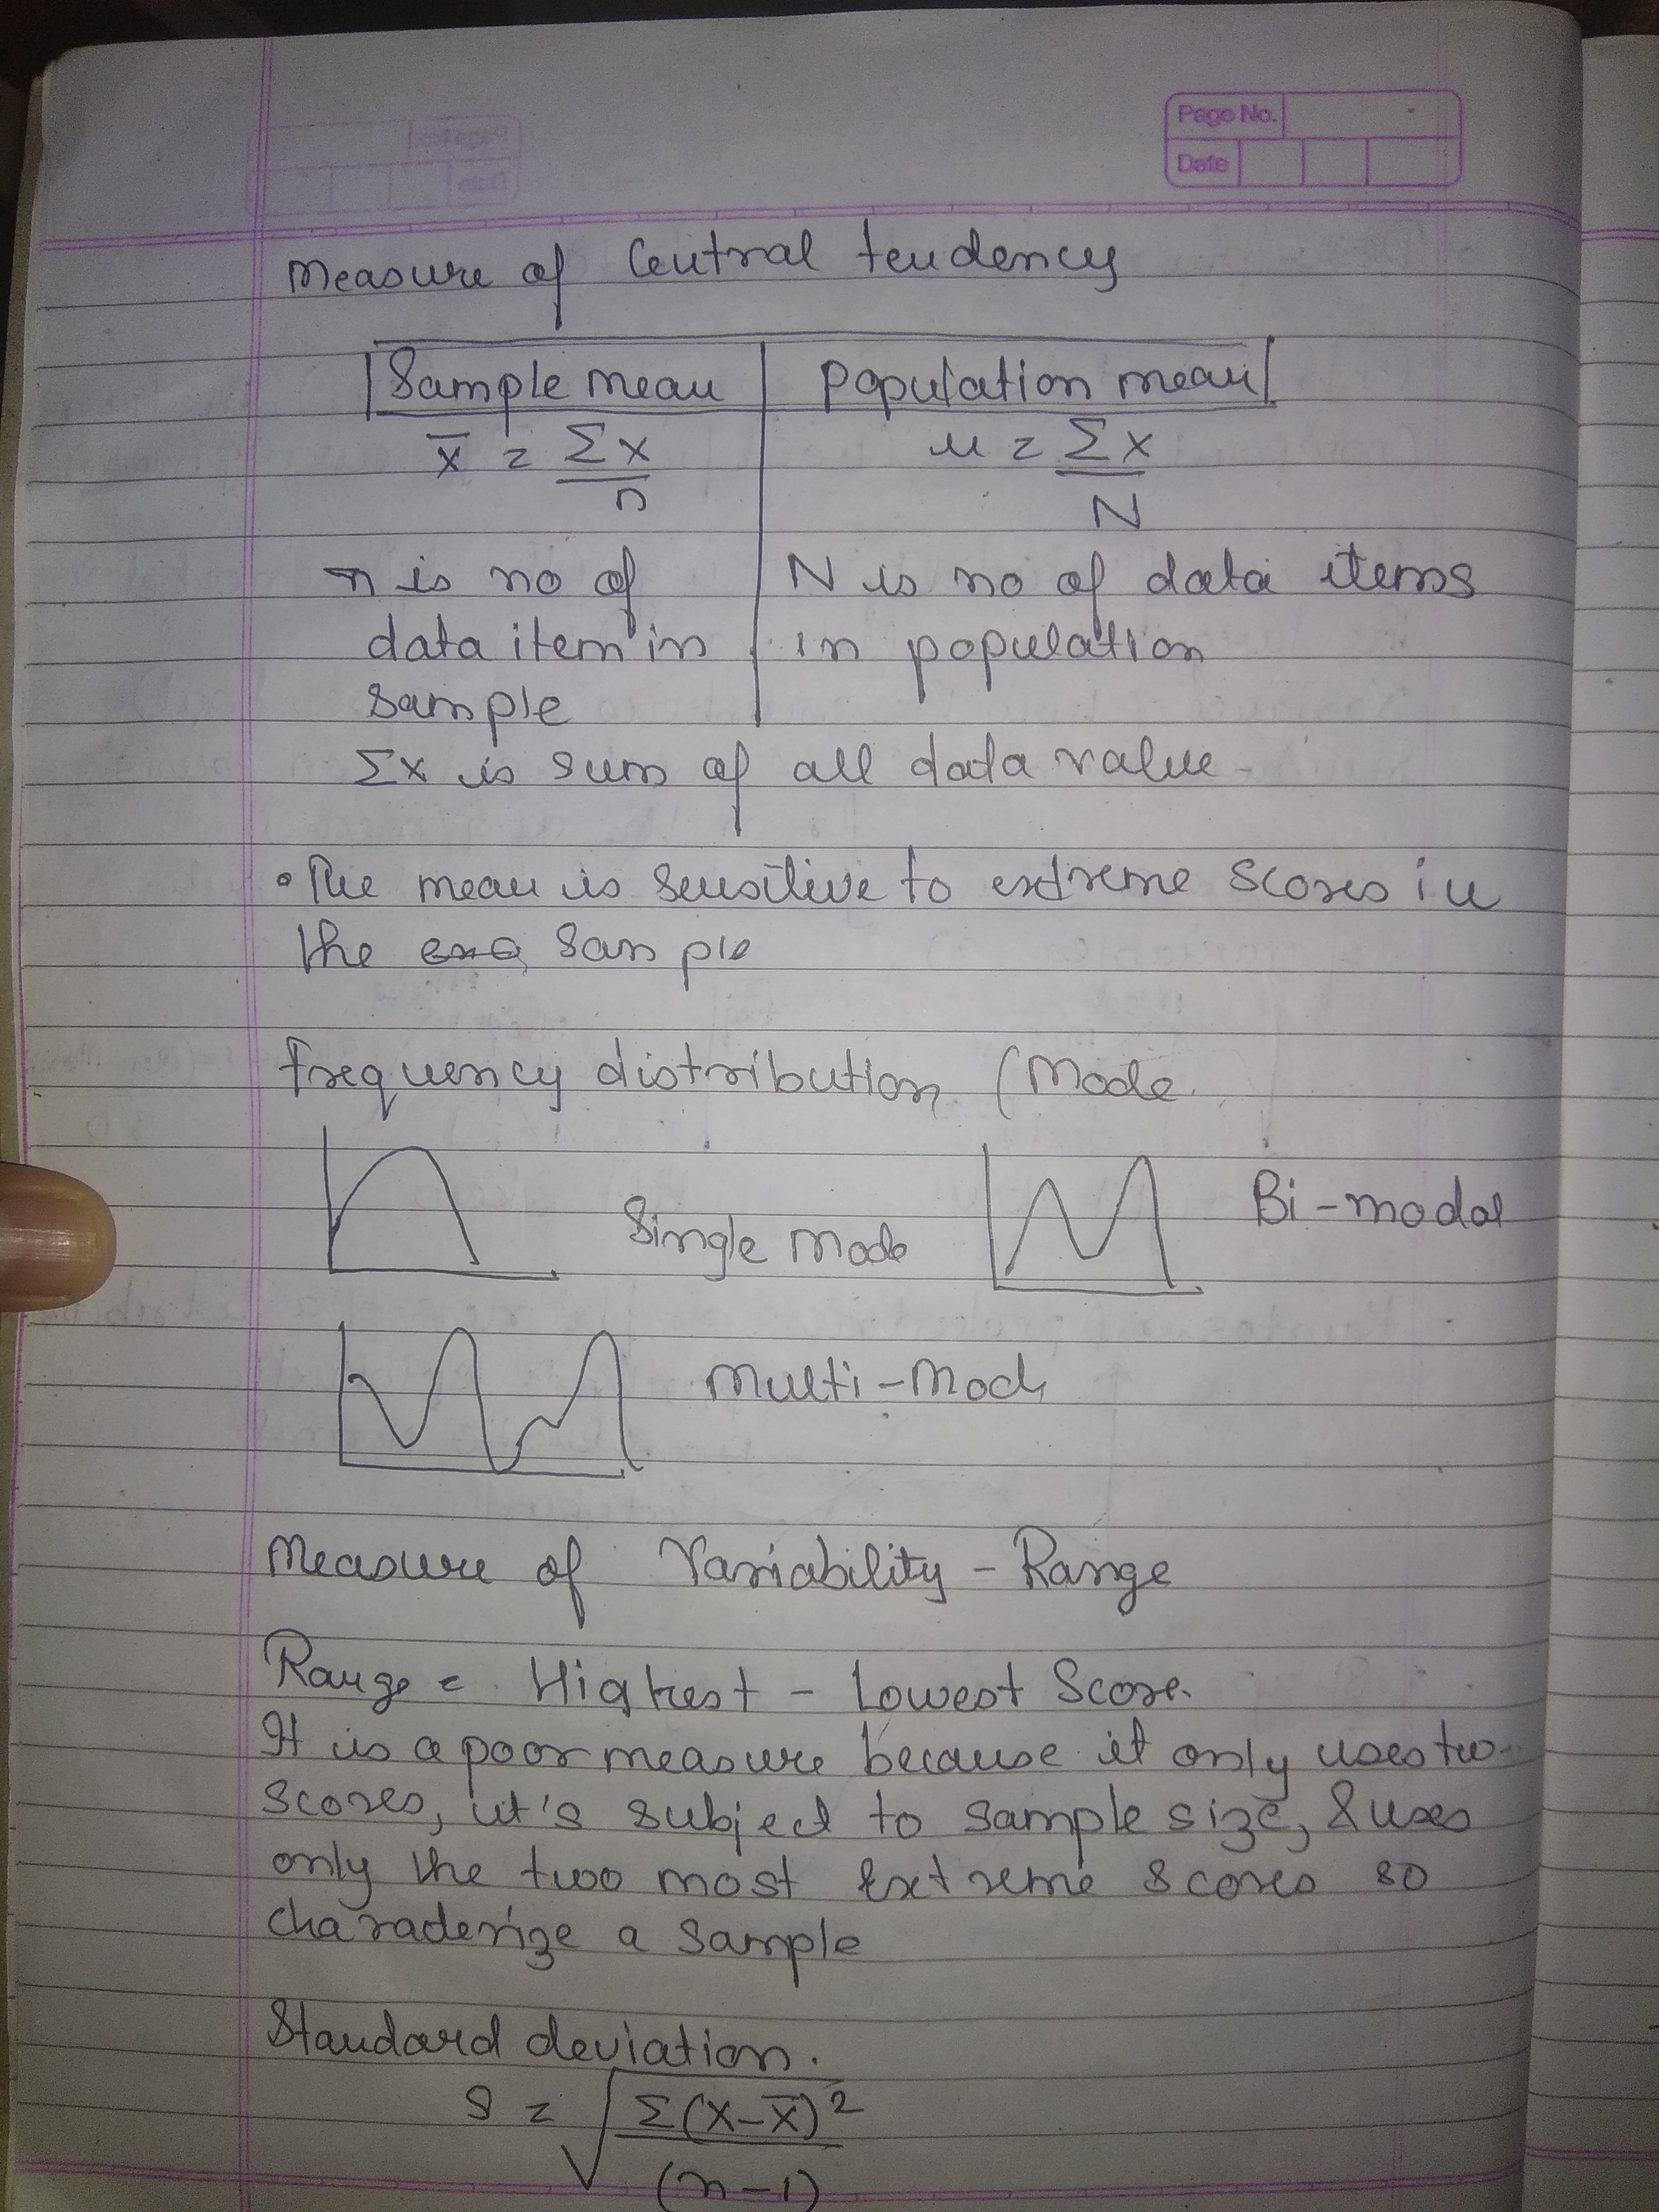 Page No.
Date
Measure of Central tendency
Sample mean | Population mean
x̄ = Σx / n | μ = Σx / N
n is no of | N is no of data items
data item in | in population
sample
Σx is sum of all data value
• The mean is sensitive to extreme scores in
the sample
frequency distribution (Mode
Single mode
Bi-modal
Multi-Mod
Measure of Variability - Range
Range = Highest - Lowest Score.
It is a poor measure because it only uses two
scores, it's subject to sample size, & uses
only the two most extreme scores so
characterize a sample
Standard deviation.
S = √ Σ(x-x̄)² / (n-1)